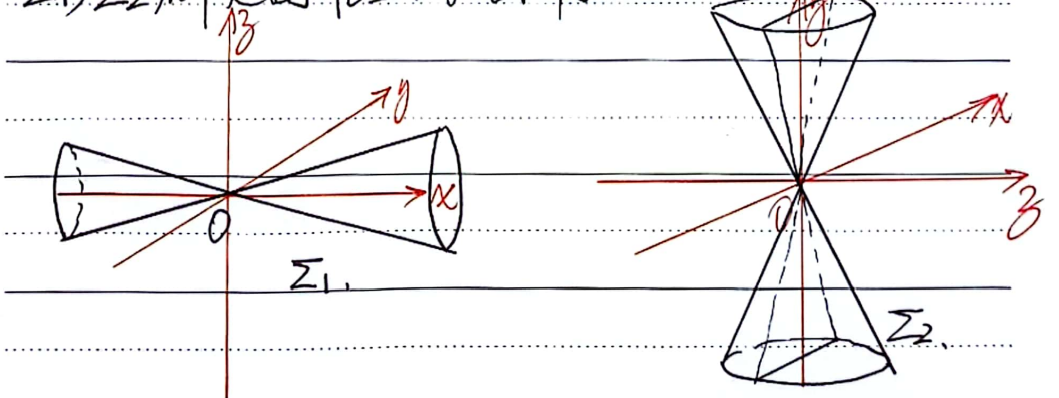 z
y
x
O
Σ1.
y
x
z
O
Σ2.